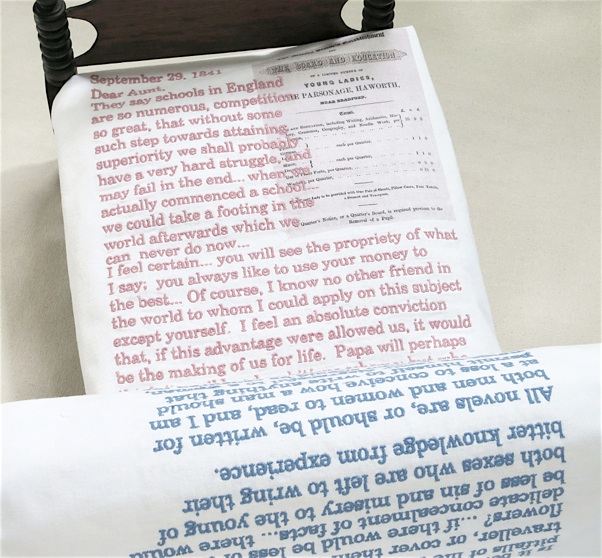 September 29. 1841
Dear Aunt.
They say schools in England
are so numerous, competitions
so great, that without some
such step towards attaining
superiority we shall probably
have a very hard struggle, and
may fail in the end... when we
actually commenced a school...
we could take a footing in the
world afterwards which we
can never do now...
I feel certain... you will see the propriety of what
I say; you always like to use your money to
the best... Of course, I know no other friend in
the world to whom I could apply on this subject
except yourself. I feel an absolute conviction
that, if this advantage were allowed us, it would
be the making of us for life. Papa will perhaps
THE BOARD AND EDUCATION
OF A LIMITED NUMBER OF
YOUNG LADIES,
THE PARSONAGE, HAWORTH,
NEAR BRADFORD.
Terms.
per Quarter
each per Quarter
per Quarter
Quarter's Notice, or a Quarter's Board, is required previous to the
Removal of a Pupil.
traveller, or cover them
flowers? ...if there would be less
delicate concealment of facts... there would
be less of sin and misery to the young of
both sexes who are left to wring their
bitter knowledge from experience.
All novels are, or should be, written for
both men and women to read, and I am
at a loss to conceive how a man should
anything that